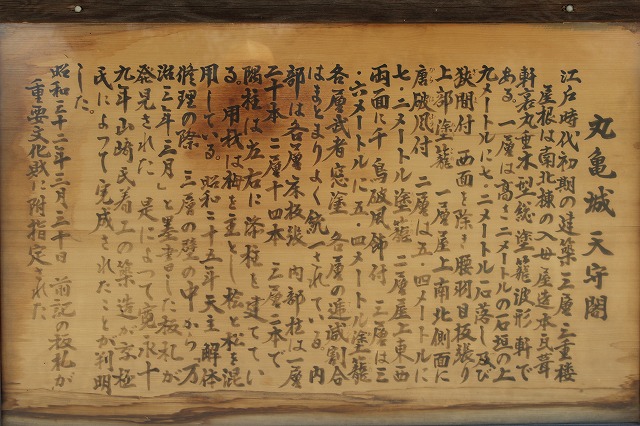 丸亀城天守閣
江戸時代初期の建築 三層三重楼
屋根は南北棟の入母屋造本瓦葺
軒裏丸垂木型総塗籠波形軒で
ある。一層は高さ二メートルの石垣の上
九メートルに七・二メートル 石落し及び
狭間付 西面を除き腰羽目板張り
上部塗籠 一層屋上南北側面に
唐破風付 二層は五・四メートルに
七・二メートル塗籠 二層屋上東西
両面に千鳥破風飾付 三層は三
・六メートルに五・四メートル塗籠
各層武者窓塗 各層の逓減割合
はまとまりよく統一されている。内
部は各層床板張 内部柱は一層
二十本 二層十四本 三層六本で
隅柱は左右に添柱を建ててい
る。用材は栂を主とし桧と松を混
用している。昭和二十五年天主解体
修理の際 三層の壁の中から「万
治三年三月」と墨書した板札が
発見された 是によって寛永十
九年山崎氏着工の築造が京極
氏によって完成されたことが判明
した。
昭和三十二年三月三十日 前記の板札が
重要文化財に附指定された